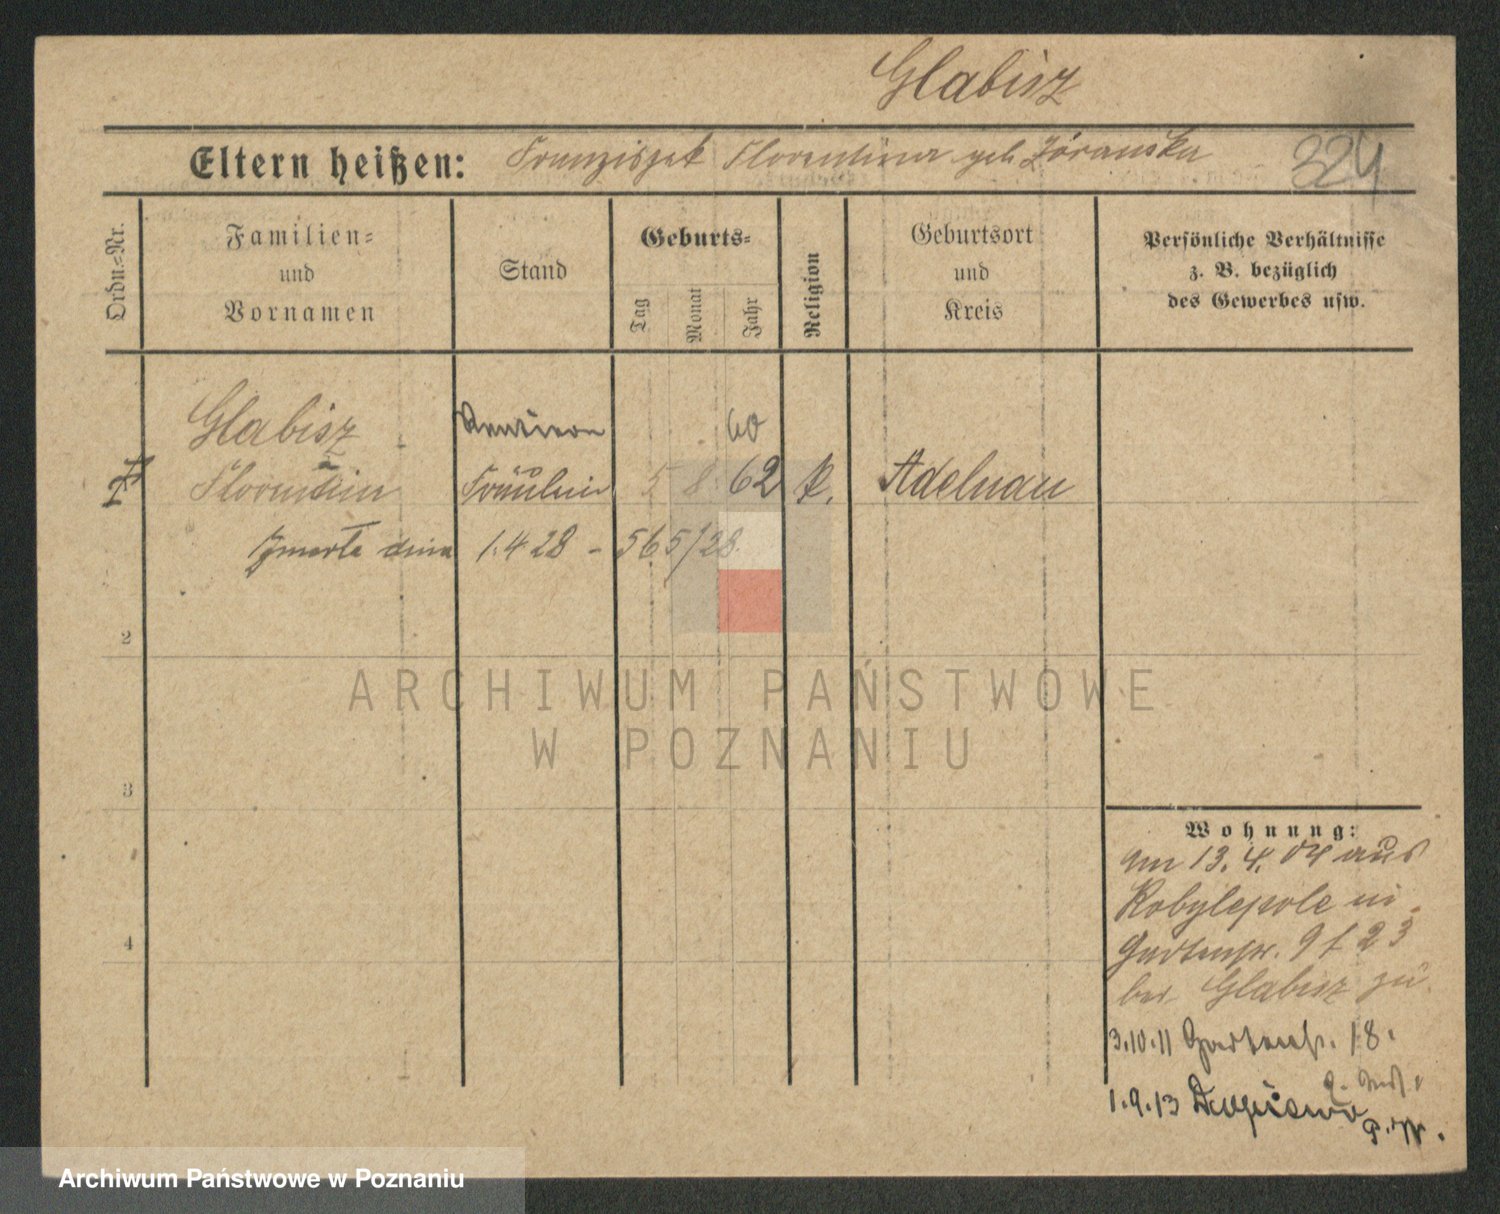 Glabisz
Eltern heißen: Franziszek Florentina geb. Żórańska
324
Ordn.-Nr.
Familien-
und
Vornamen
Stand
Geburts-
Tag
Monat
Jahr
Religion
Geburtsort
und
Kreis
Persönliche Verhältnisse
z. B. bezüglich
des Gewerbes usw.
Glabisz
60
Fräulein 5 8 62 k. Adelnau
zmarła dnia 1.4 28 - 565/28.
2
3
4
ARCHIWUM PAŃSTWOWE
W POZNANIU
Wohnung:
am 13.4.04 aus
Kobylepole in
Gartenstr. 9 f 23
bei Glabisz zu
3.10.11 Gartenstr. 18.
1.9.13
Archiwum Państwowe w Poznaniu